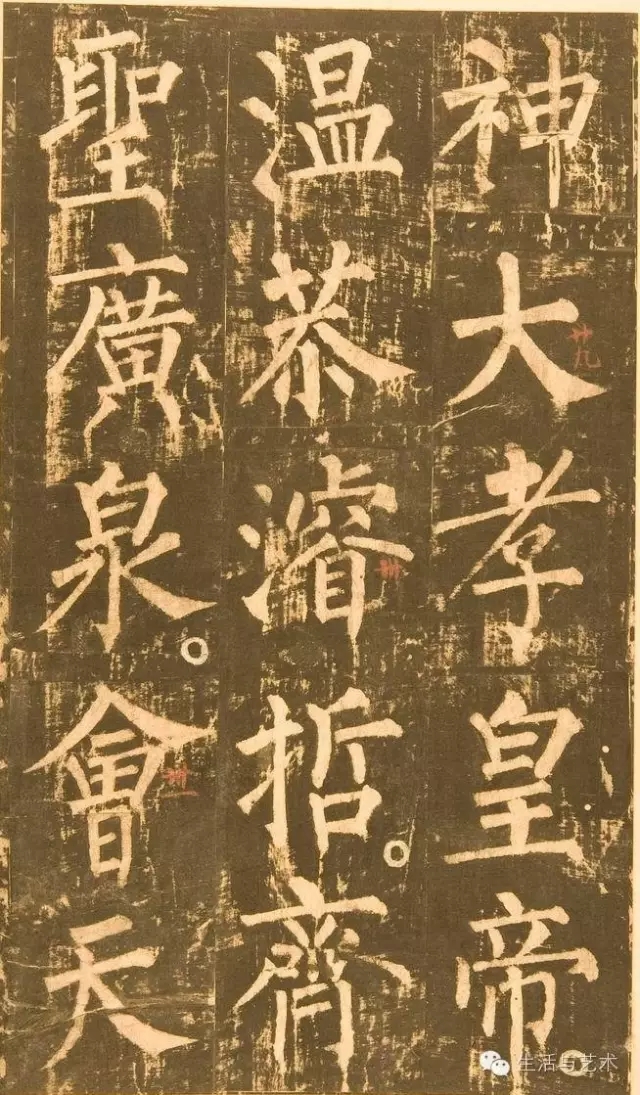 神大孝皇帝。
温恭濬哲。齊
聖廣泉。會天
廿九
卅
卅一
生活与艺术